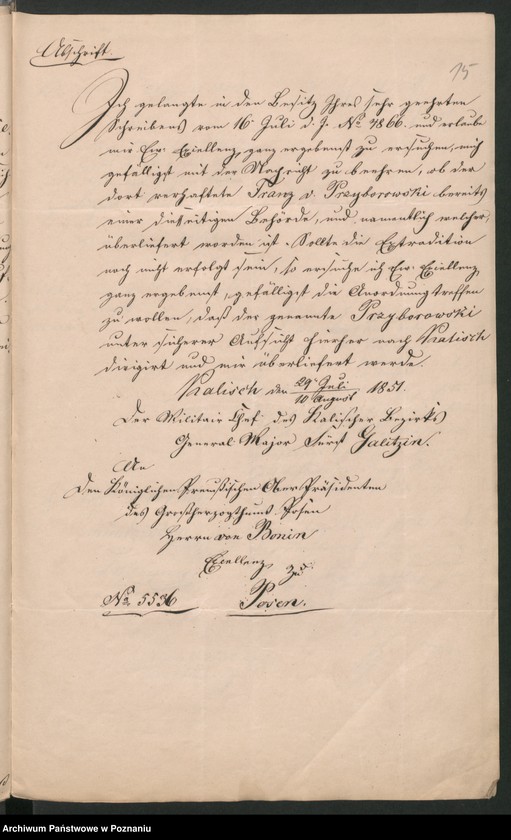 Abschrift.
15
Ich gelangte in den Besitz Ihres sehr geehrten
Schreibens vom 16t Juli d. J. No 4866. und erlaube
mir Ew. Exellenz ganz ergebenst zu ersuchen, mich
gefälligst mit der Nachricht zu beehren, ob der
dort verhaftete Franz v. Przyborowski bereits
einer diesseitigen Behörde, und namentlich welcher,
überliefert worden ist. Sollte die Extradition
noch nicht erfolgt sein, so ersuche ich Ew. Exellenz
ganz ergebenst, gefälligst die Anordnung treffen
zu wollen, daß der genannte Przyborowski
unter sicherer Aufsicht hierher nach Kalisch
dirigirt und mir überliefert werde.
Kalisch den 29t Juli / 10 August 1851.
Der Militair Chef des Kalischer Bezirks
General Major Fürst Galitzin.
An
Den Königlichen Preußischen Ober Präsidenten
des Großherzogthums Posen
Herrn von Bonin
Exellenz
zu
No 5536 Posen.
Archiwum Państwowe w Poznaniu